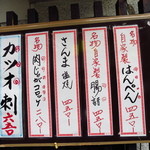 名物
自家製
はんぺん
四五〇
名物
自家製
四五〇
さんま
塩焼
四五〇
名物
肉じゃがコロッケ
二八〇
カツオ刺
六〇〇